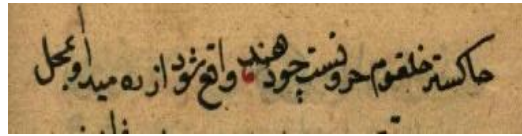 خاکستر حلقوم خروتست چود هند واقع شود از ره میداو بمحل